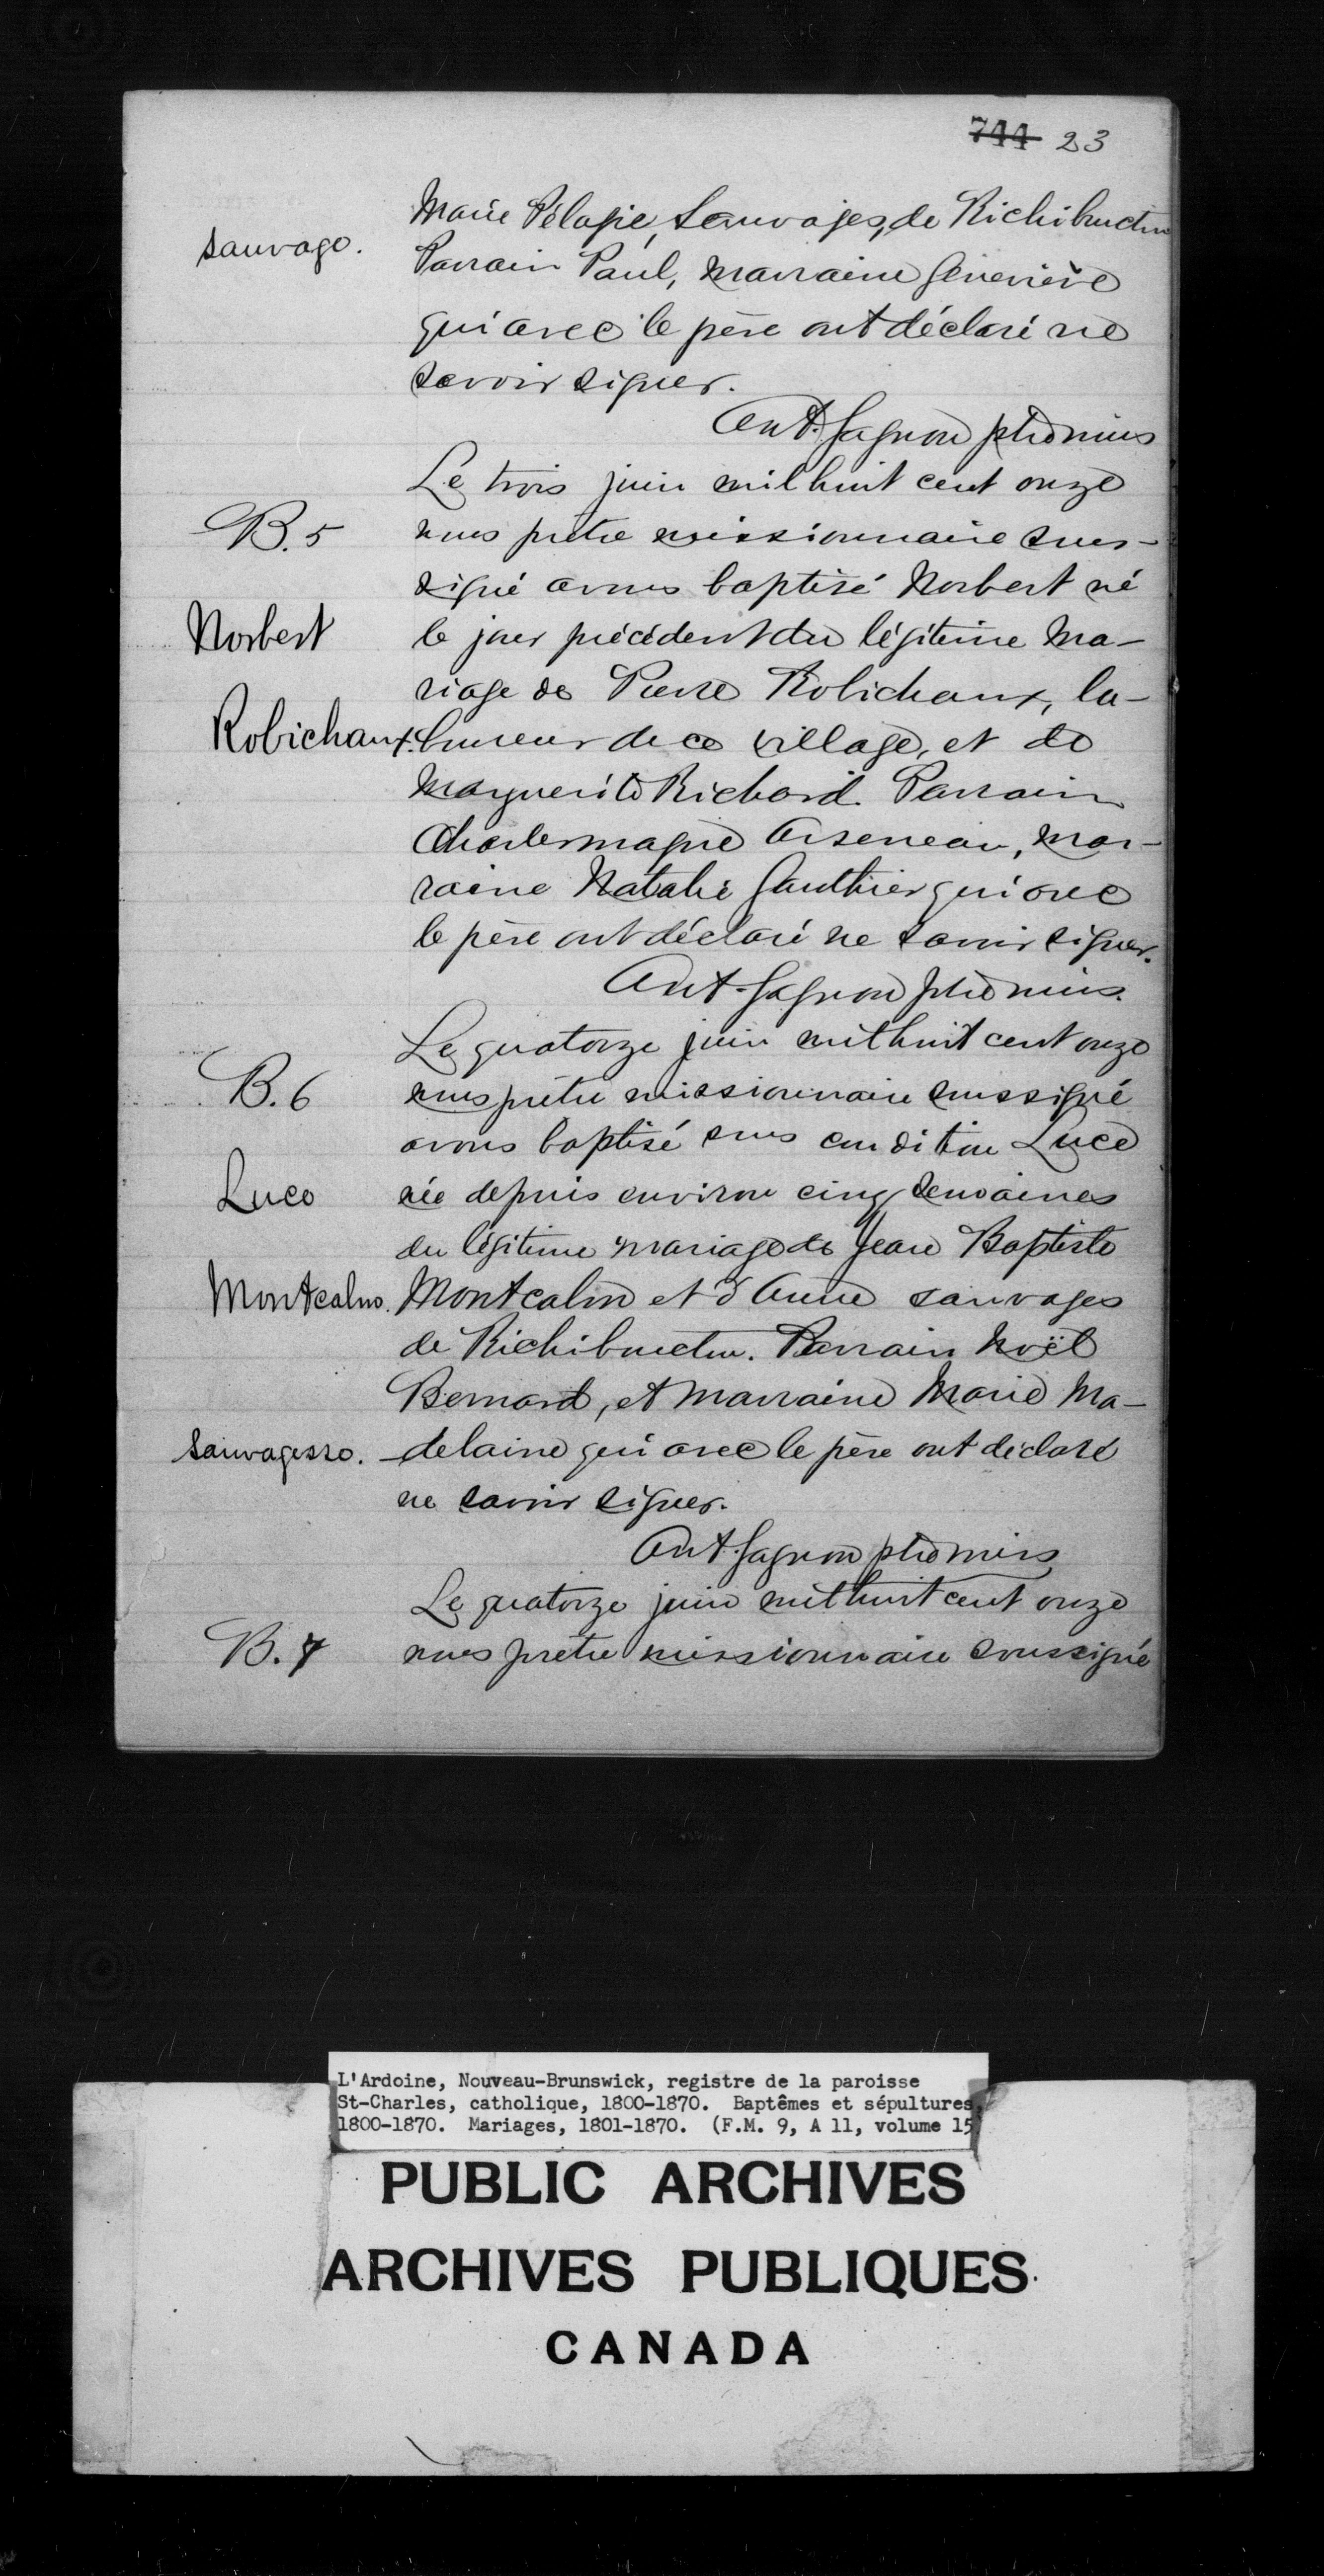 744 23
Marie Pélagie, Sauvages, de Richibuctou
sauvage.
Parrain Paul, marraine Geneviève
qui avec le père ont déclaré ne
savoir signer.
Ant. Gagnon ptre miss
Le trois juin mil huit cent onze
B. 5
nous prêtre missionnaire sous-
signé avons baptisé Norbert né
Norbert
le jour précédent du légitime ma-
riage de Pierre Robichaux, la-
Robichaux.
boureur de ce village, et de
Marguerite Richard. Parrain
Charlemagne Arseneau, mar-
raine Natalie Gauthier qui avec
le père ont déclaré ne savoir signer.
Ant. Gagnon ptre miss.
Le quatorze juin mil huit cent onze
B. 6
nous prêtre missionnaire soussigné
avons baptisé sous condition Luce
Luce
née depuis environ cinq semaines
du légitime mariage de Jean Baptiste
Montcalm.
Montcalm et d'Anne sauvages
de Richibuctou. Parrain Noël
Bernard, et marraine Marie Ma-
sauvagesse.
-delaine qui avec le père ont déclaré
ne savoir signer.
Ant. Gagnon ptre miss
Le quatorze juin mil huit cent onze
B. 7
nous prêtre missionnaire soussigné
L'Ardoine, Nouveau-Brunswick, registre de la paroisse
St-Charles, catholique, 1800-1870. Baptêmes et sépultures,
1800-1870. Mariages, 1801-1870. (F.M. 9, A 11, volume 15)
PUBLIC ARCHIVES
ARCHIVES PUBLIQUES
CANADA